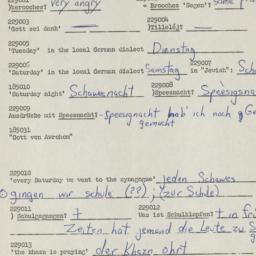 )berooches? very angry = Brooches 'Segen'? some
229003 229004
'Gott sei dank' )Tilleloj?
229005
'Tuesday' in the local German dialect Dienstag
229006 229007
'Saturday' in the local German dialect Samstag in "Jewish": Sch
105010 229008
'Saturday night' Schawesnacht )Speesnacht? Speesigsna
229009
Ausdrücke mit Speesnacht? -speesignacht hab' ich noch g Ge
gemacht
185031
"Gott von Avrohom"
229010
'every Saturday we went to the synagogue' jeden Schawes
gingen wir schule (??), (zur Schule)
229011 229012
) Schulgegangen? + Was ist Schulklopfen? + in frü
Zeiten hat jemand die Leute zu S
229013
'the khazn is praying' der Khazn ohrt